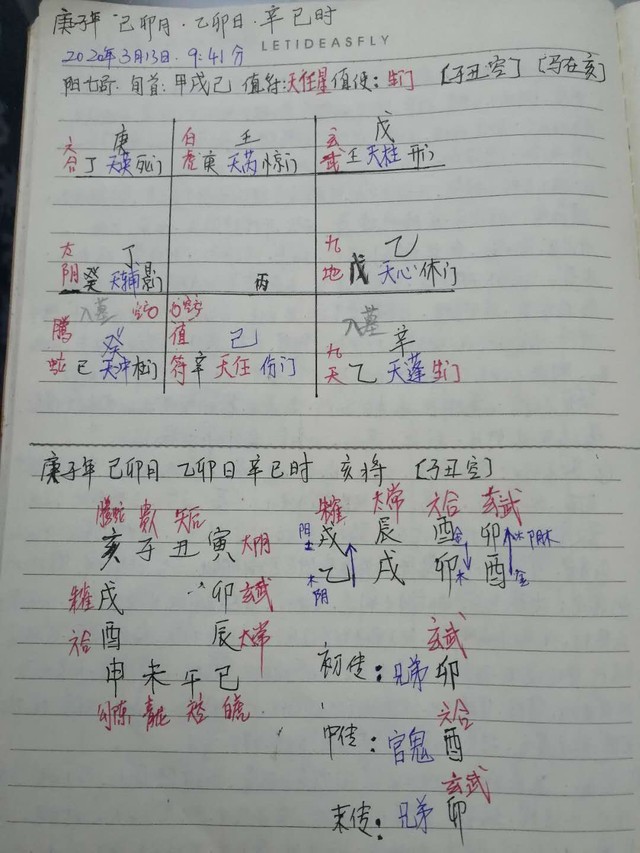 庚子年 己卯月·乙卯日·辛巳时
2020年3月13日·9:41分 LETIDEASFLY
阳七局·旬首:甲戌己 值符:天任星 值使:生门 [子丑空] [马在亥]
六合 庚 白虎 壬 玄武 戊
丁 天英 死门 庚 天芮 惊门 壬 天柱 开门
太阴 丁 九地 乙
癸 天辅 景门 丙 戊 天心 休门
入墓 空 空 入墓
腾蛇 癸 值符 己 九天 辛
己 天冲 杜门 辛 天任 伤门 乙 天蓬 生门
庚子年 己卯月 乙卯日 辛巳时 亥将 [子丑空]
腾蛇 贵人 天后 朱雀 太常 六合 玄武
亥 子 丑 寅 太阴 阳土 戌 辰 酉金 卯 阴木
朱雀 戌 卯 玄武 木阴 乙 戌 卯木 酉金
六合 酉 辰 太常 玄武
初传:兄弟 卯
申 未 午 巳
勾陈 青龙 白虎 六合
中传:官鬼 酉
玄武
末传:兄弟 卯